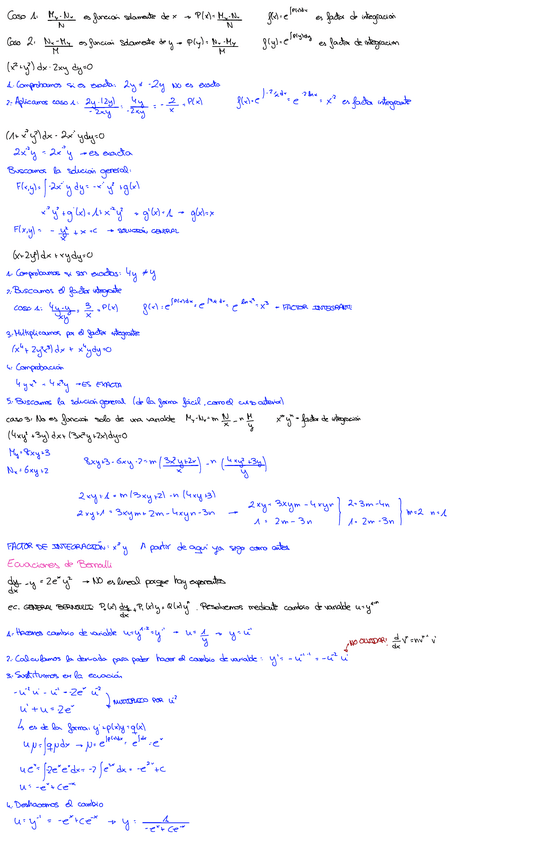 Caso 1. (My - Nx)/N es función solamente de x → P(x) = (My - Nx)/N   f(x) = e^∫P(x)dx es factor de integración
Caso 2. (Nx - My)/M es función solamente de y → P(y) = (Nx - My)/M   f(y) = e^∫P(y)dy es factor de integración
(x² + y²) dx - 2xy dy = 0
1. Comprobamos si es exacta: 2y ≠ -2y NO es exacta
2. Aplicamos caso 1: (2y - (2y))/(-2xy) = 4y/(-2xy) = -2/x = P(x)   f(x) = e^∫-2/x dx = e^-2lnx = x^-2 es factor integrante
(1 + x^-2 y²) dx - 2x^-1 y dy = 0
2x^-2 y = 2x^-2 y → es exacta
Buscamos la solución general:
F(x,y) = ∫-2x^-1 y dy = -x^-1 y² + g(x)
x^-2 y² + g'(x) = 1 + x^-2 y² → g'(x) = 1 → g(x) = x
F(x,y) = -y²/x + x = C → SOLUCIÓN GENERAL
(x + 2y²) dx + xy dy = 0
1. Comprobamos si son exactas: 4y ≠ y
2. Buscamos el factor integrante
caso 1: (4y - y)/xy = 3/x = P(x)   f(x) = e^∫P(x)dx = e^∫3/x dx = e^lnx³ = x³ → FACTOR INTEGRANTE
3. Multiplicamos por el factor integrante
(x⁴ + 2y²x³) dx + x⁴y dy = 0
4. Comprobación
4yx³ = 4x³y → ES EXACTA
5. Buscamos la solución general (de la forma fácil, como el caso anterior)
caso 3. No es función solo de una variable My - Nx = m N/x - n M/y   x^m y^n = factor de integración
(4xy² + 3y) dx + (3x²y + 2x) dy = 0
My = 8xy + 3
Nx = 6xy + 2
8xy + 3 - 6xy - 2 = m ((3x²y + 2x)/x) - n ((4xy² + 3y)/y)
2xy + 1 = m (3xy + 2) - n (4xy + 3)
2xy + 1 = 3xym + 2m - 4xyn - 3n → 2xy = 3xym - 4xyn } 2 = 3m - 4n } m = 2 n = 1
1 = 2m - 3n } 1 = 2m - 3n
FACTOR DE INTEGRACIÓN: x²y A partir de aquí ya sigo como antes
Ecuaciones de Bernoulli
dy/dx - y = 2e^x y² → NO es lineal porque hay exponentes
ec. GENERAL BERNOULLI: P₀(x) dy/dx + P₁(x)y = Q(x)y^n. Resolvemos mediante cambio de variable u = y^1-n
1. Hacemos cambio de variable u = y^1-2 = y^-1 → u = 1/y → y = u^-1
NO OLVIDAR: d/dx v^n = nv^n-1 v'
2. Calculamos la derivada para poder hacer el cambio de variable: y' = -u^-1-1 = -u^-2 u'
3. Sustituimos en la ecuación
-u^-2 u' - u^-1 = 2e^x u^-2
MULTIPLICO POR u²
u' + u = -2e^x
↳ es de la forma: y' + p(x)y = q(x)
uμ = ∫qμdx → μ = e^∫p(x)dx = e^∫dx = e^x
ue^x = ∫-2e^x e^x dx = -2∫e^2x dx = -e^2x + C
u = -e^x + Ce^-x
4. Deshacemos el cambio
u = y^-1 = -e^x + Ce^-x → y = 1/(-e^x + Ce^-x)